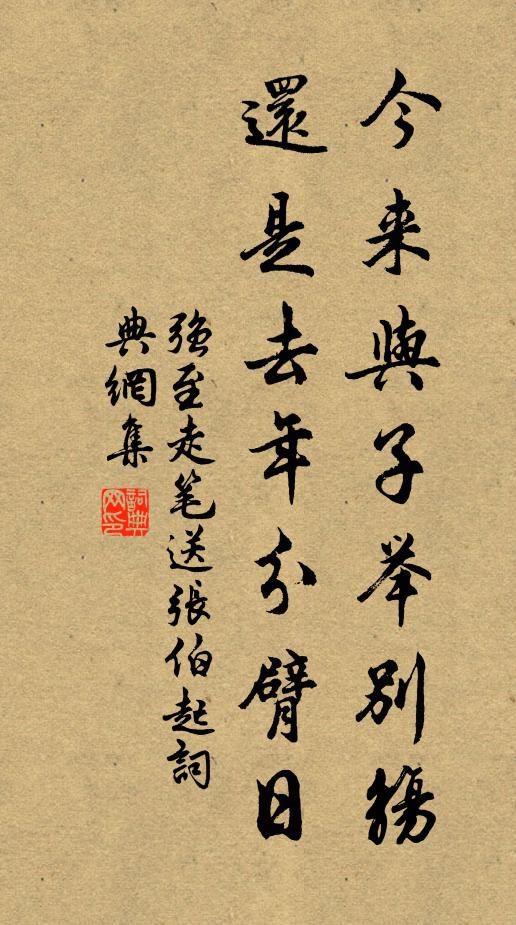 今来與子举别觴
還是去年分臂日
强至走笔送張伯起詞
典網集
詞典网印